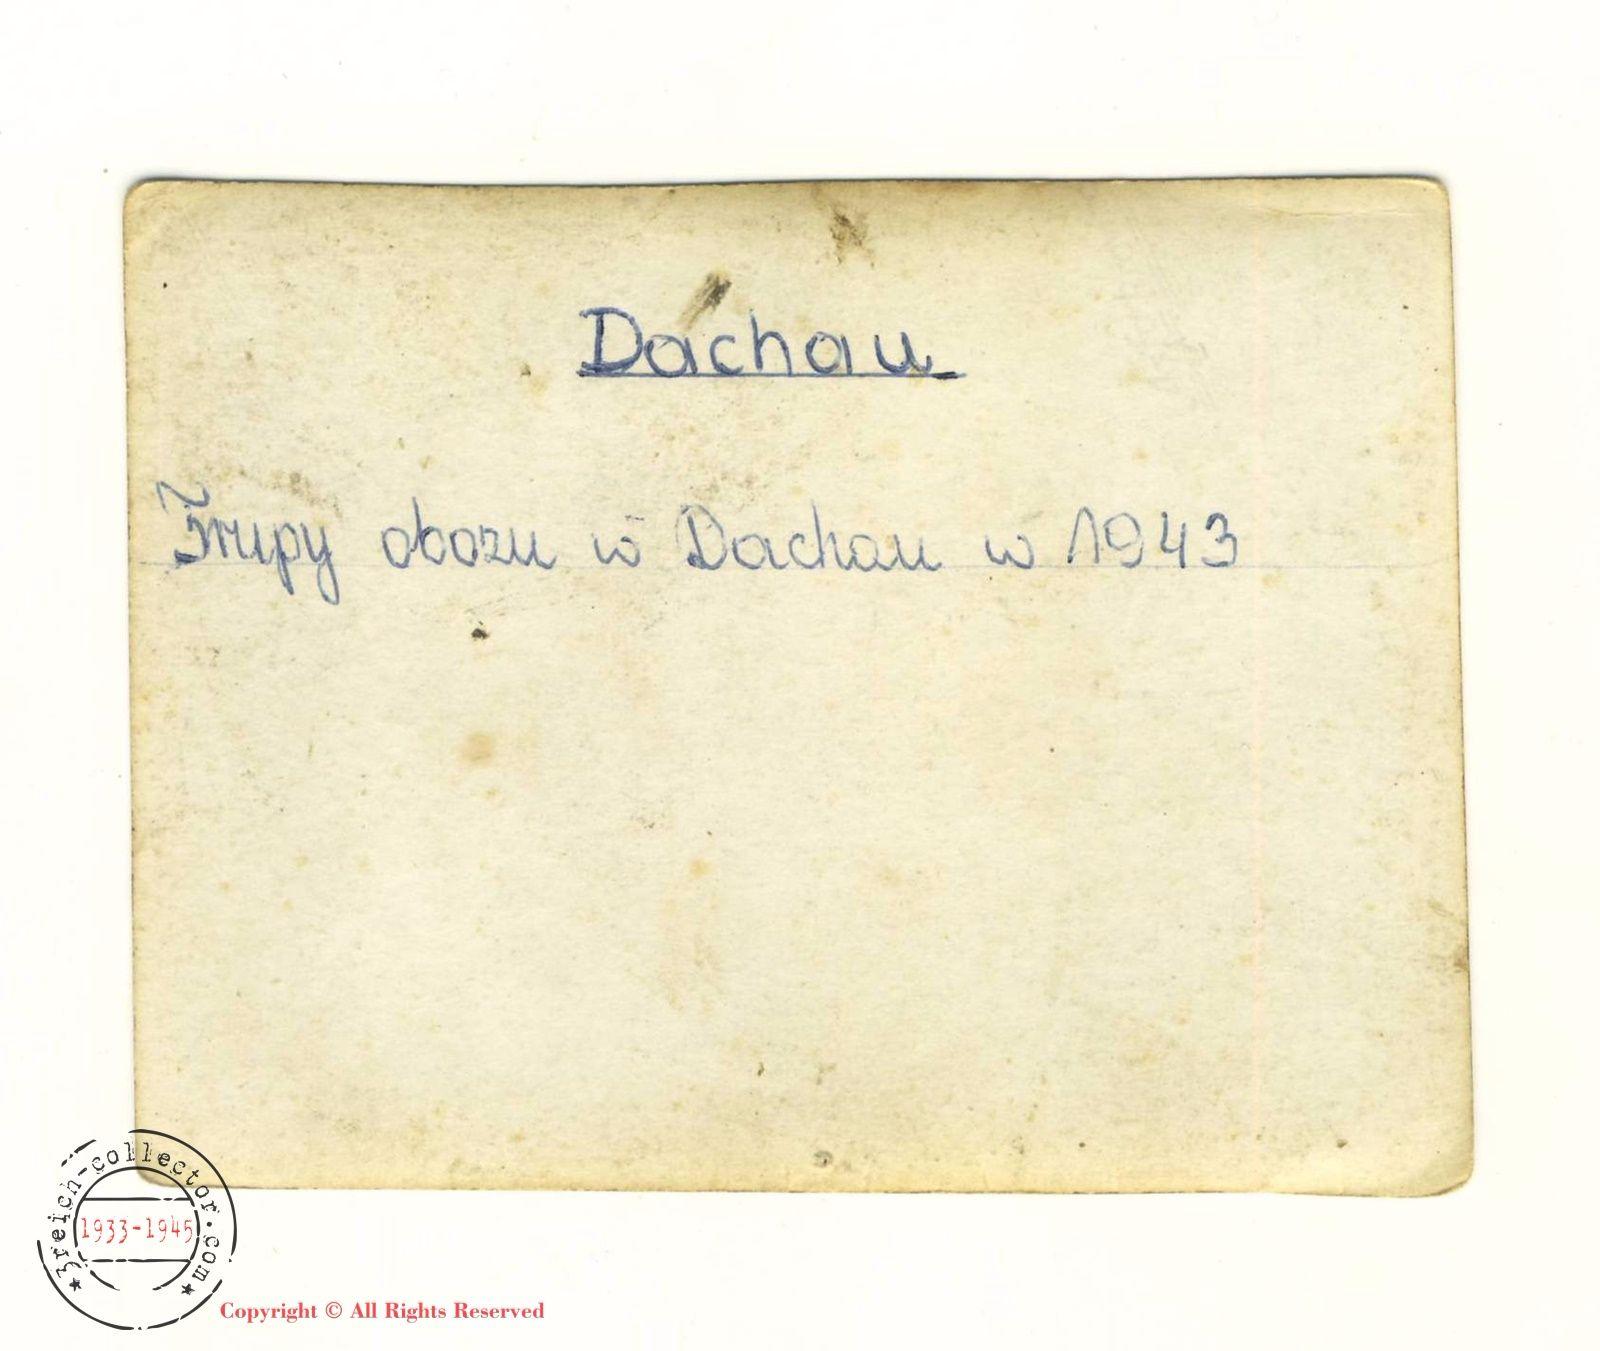 Dachau
Trupy obozu w Dachau w 1943
3reich-collector.com
1933-1945
Copyright © All Rights Reserved